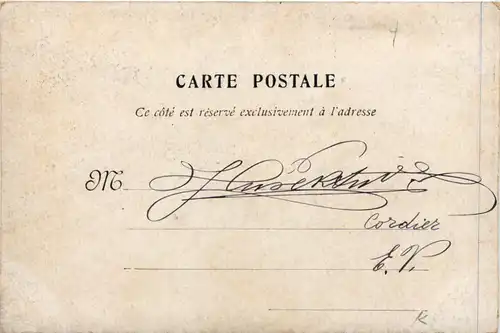 CARTE POSTALE
Ce côté est réservé exclusivement à l'adresse
M
Cordier
E. V.